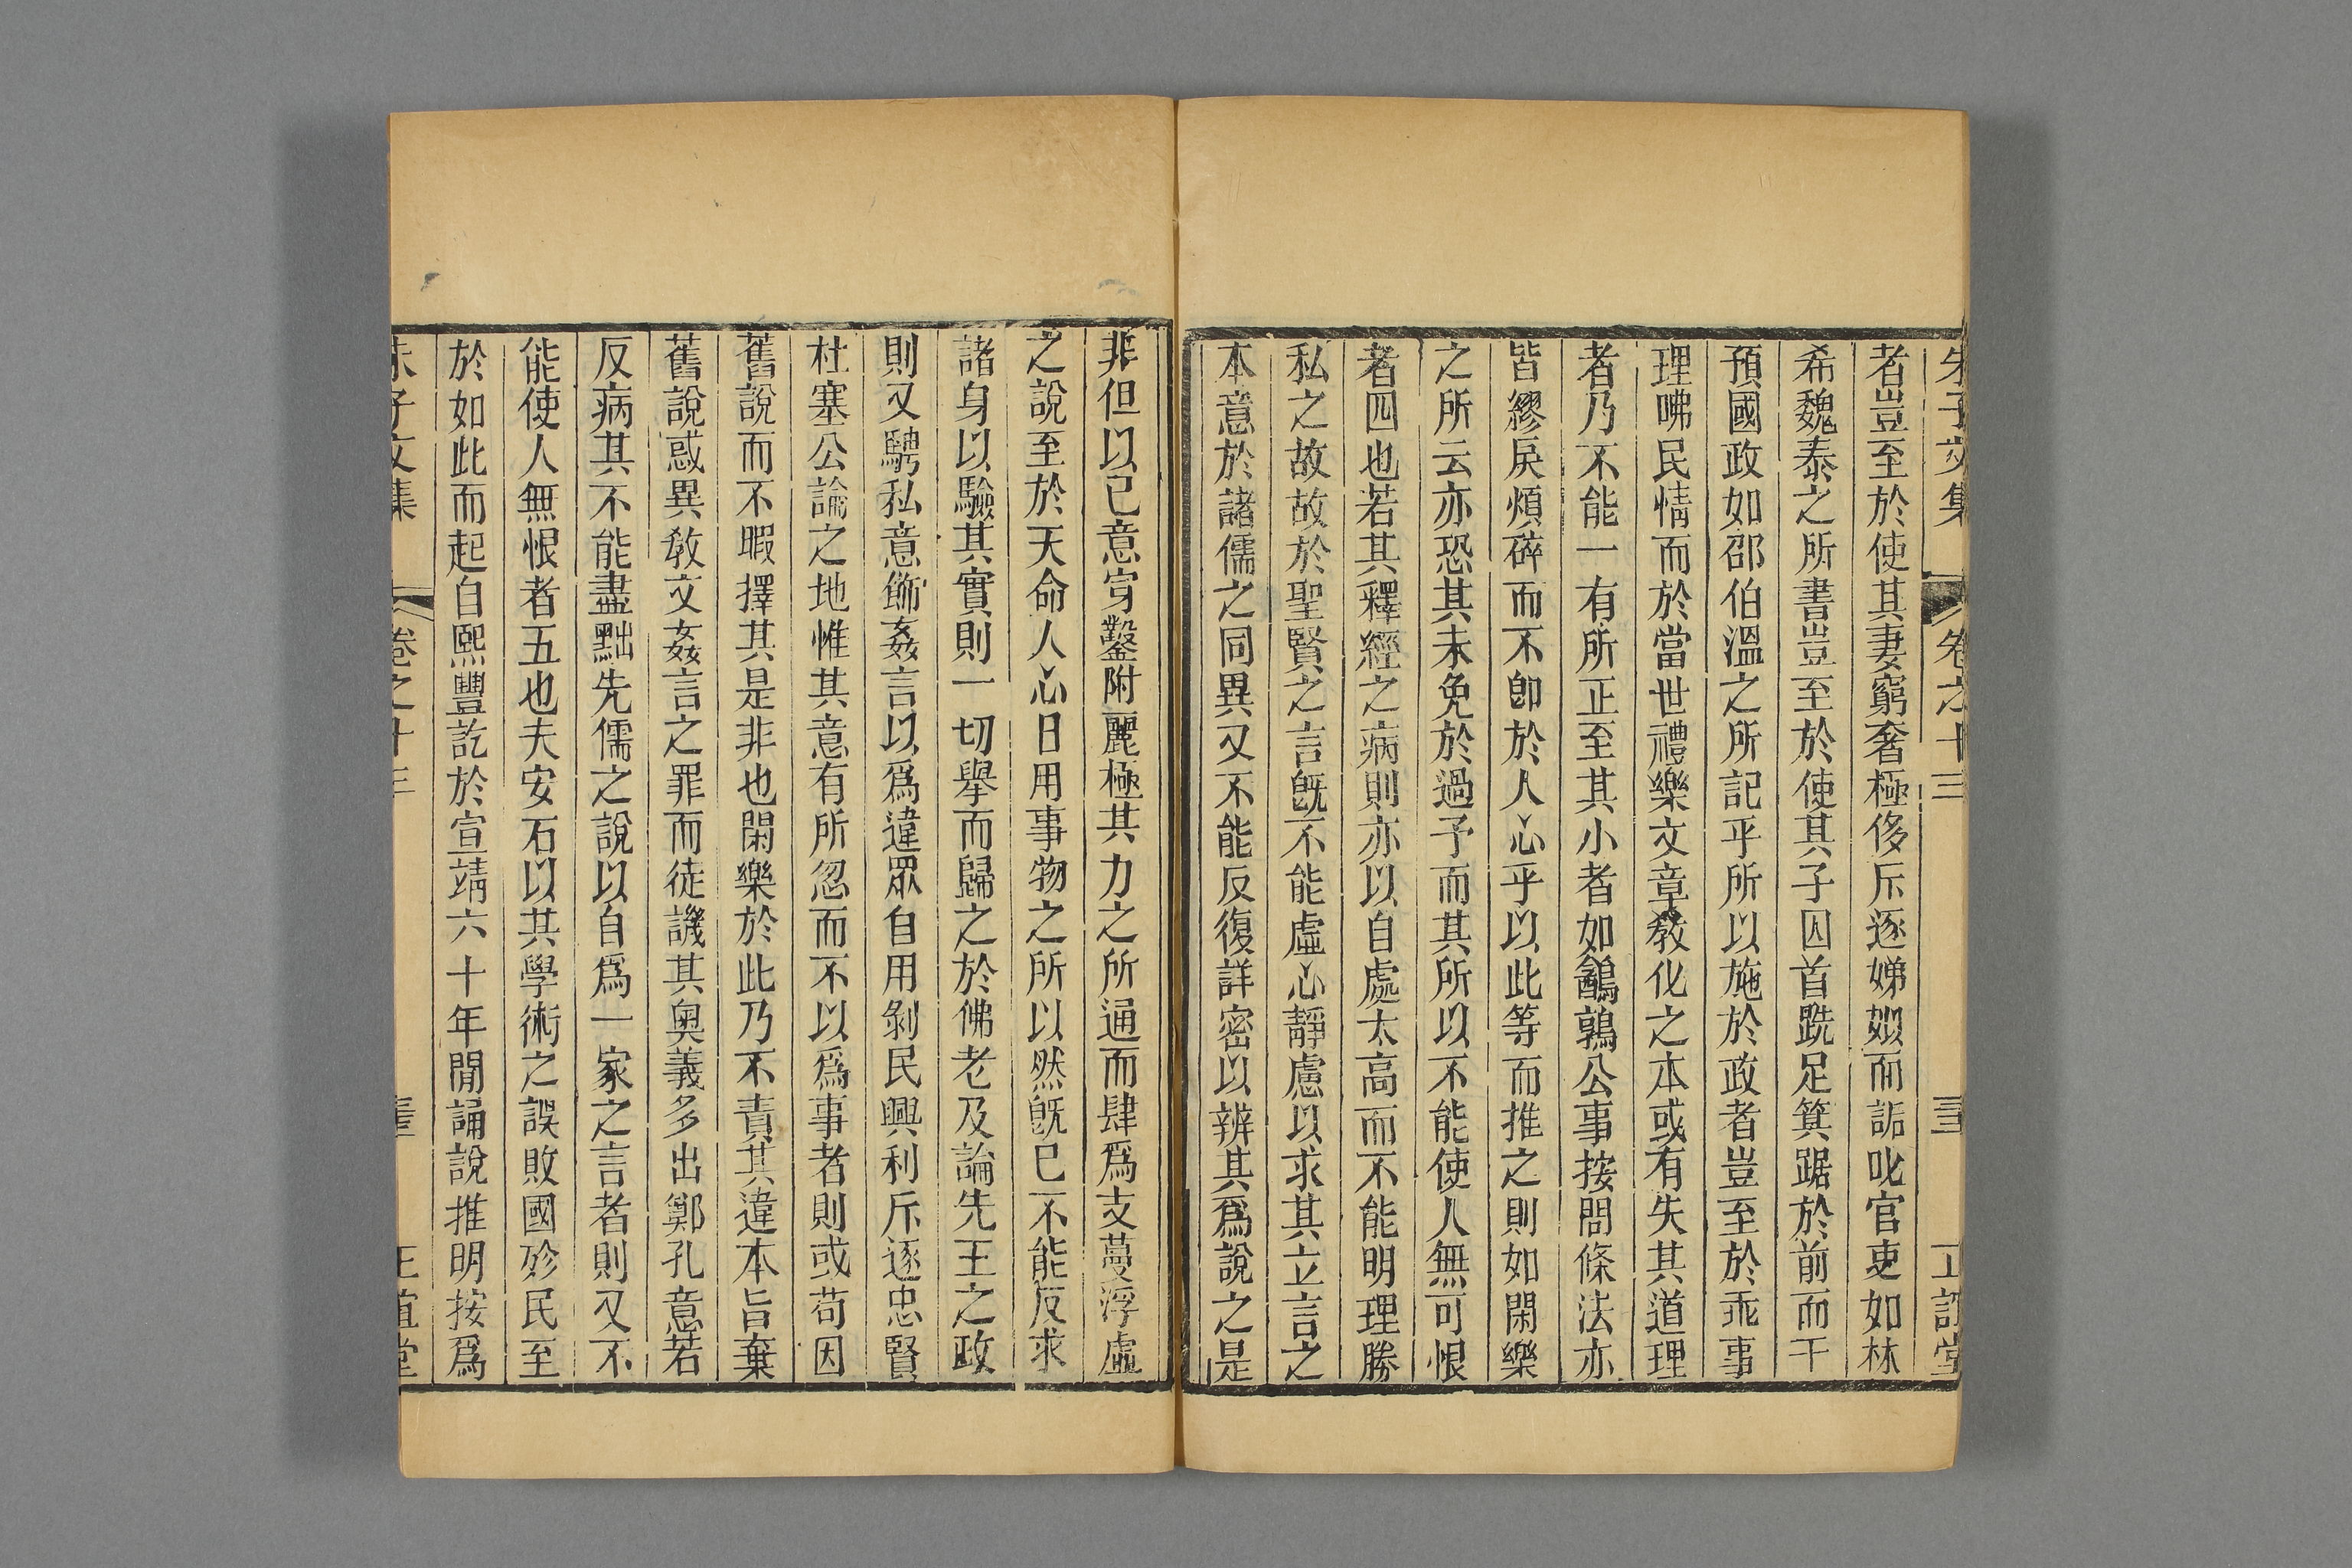 朱子文集 卷之十三 正誼堂
者豈至於使其妻窮奢極侈斥逐娣姒而詬叱官吏如林
希魏泰之所書豈至於使其子囚首跣足箕踞於前而干
預國政如邵伯溫之所記乎所以施於政者豈至於乖事
理咈民情而於當世禮樂文章教化之本或有失其道理
者乃不能一有所正至其小者如鶺鶉公事按問條法亦
皆繆戾煩碎而不卽於人心乎以此等而推之則如閑樂
之所云亦恐其未免於過予而其所以不能使人無可恨
者四也若其釋經之病則亦以自處太高而不能明理勝
私之故故於聖賢之言旣不能虛心靜慮以求其立言之
本意於諸儒之同異又不能反復詳密以辨其爲說之是
非但以已意穿鑿附麗極其力之所通而肆爲支蔓浮虛
之說至於天命人心日用事物之所以然旣已不能反求
諸身以驗其實則一切舉而歸之於佛老及論先王之政
則又騁私意飾姦言以爲違眾自用剝民興利斥逐忠賢
杜塞公論之地惟其意有所忽而不以爲事者則或苟因
舊說而不暇擇其是非也閑樂於此乃不責其違本旨棄
舊說惑異教文姦言之罪而徒譏其奧義多出鄭孔意若
反病其不能盡黜先儒之說以自爲一家之言者則又不
能使人無恨者五也夫安石以其學術之誤敗國殄民至
於如此而起自熙豐訖於宣靖六十年閒誦說推明按爲
朱子文集 卷之十三 正誼堂